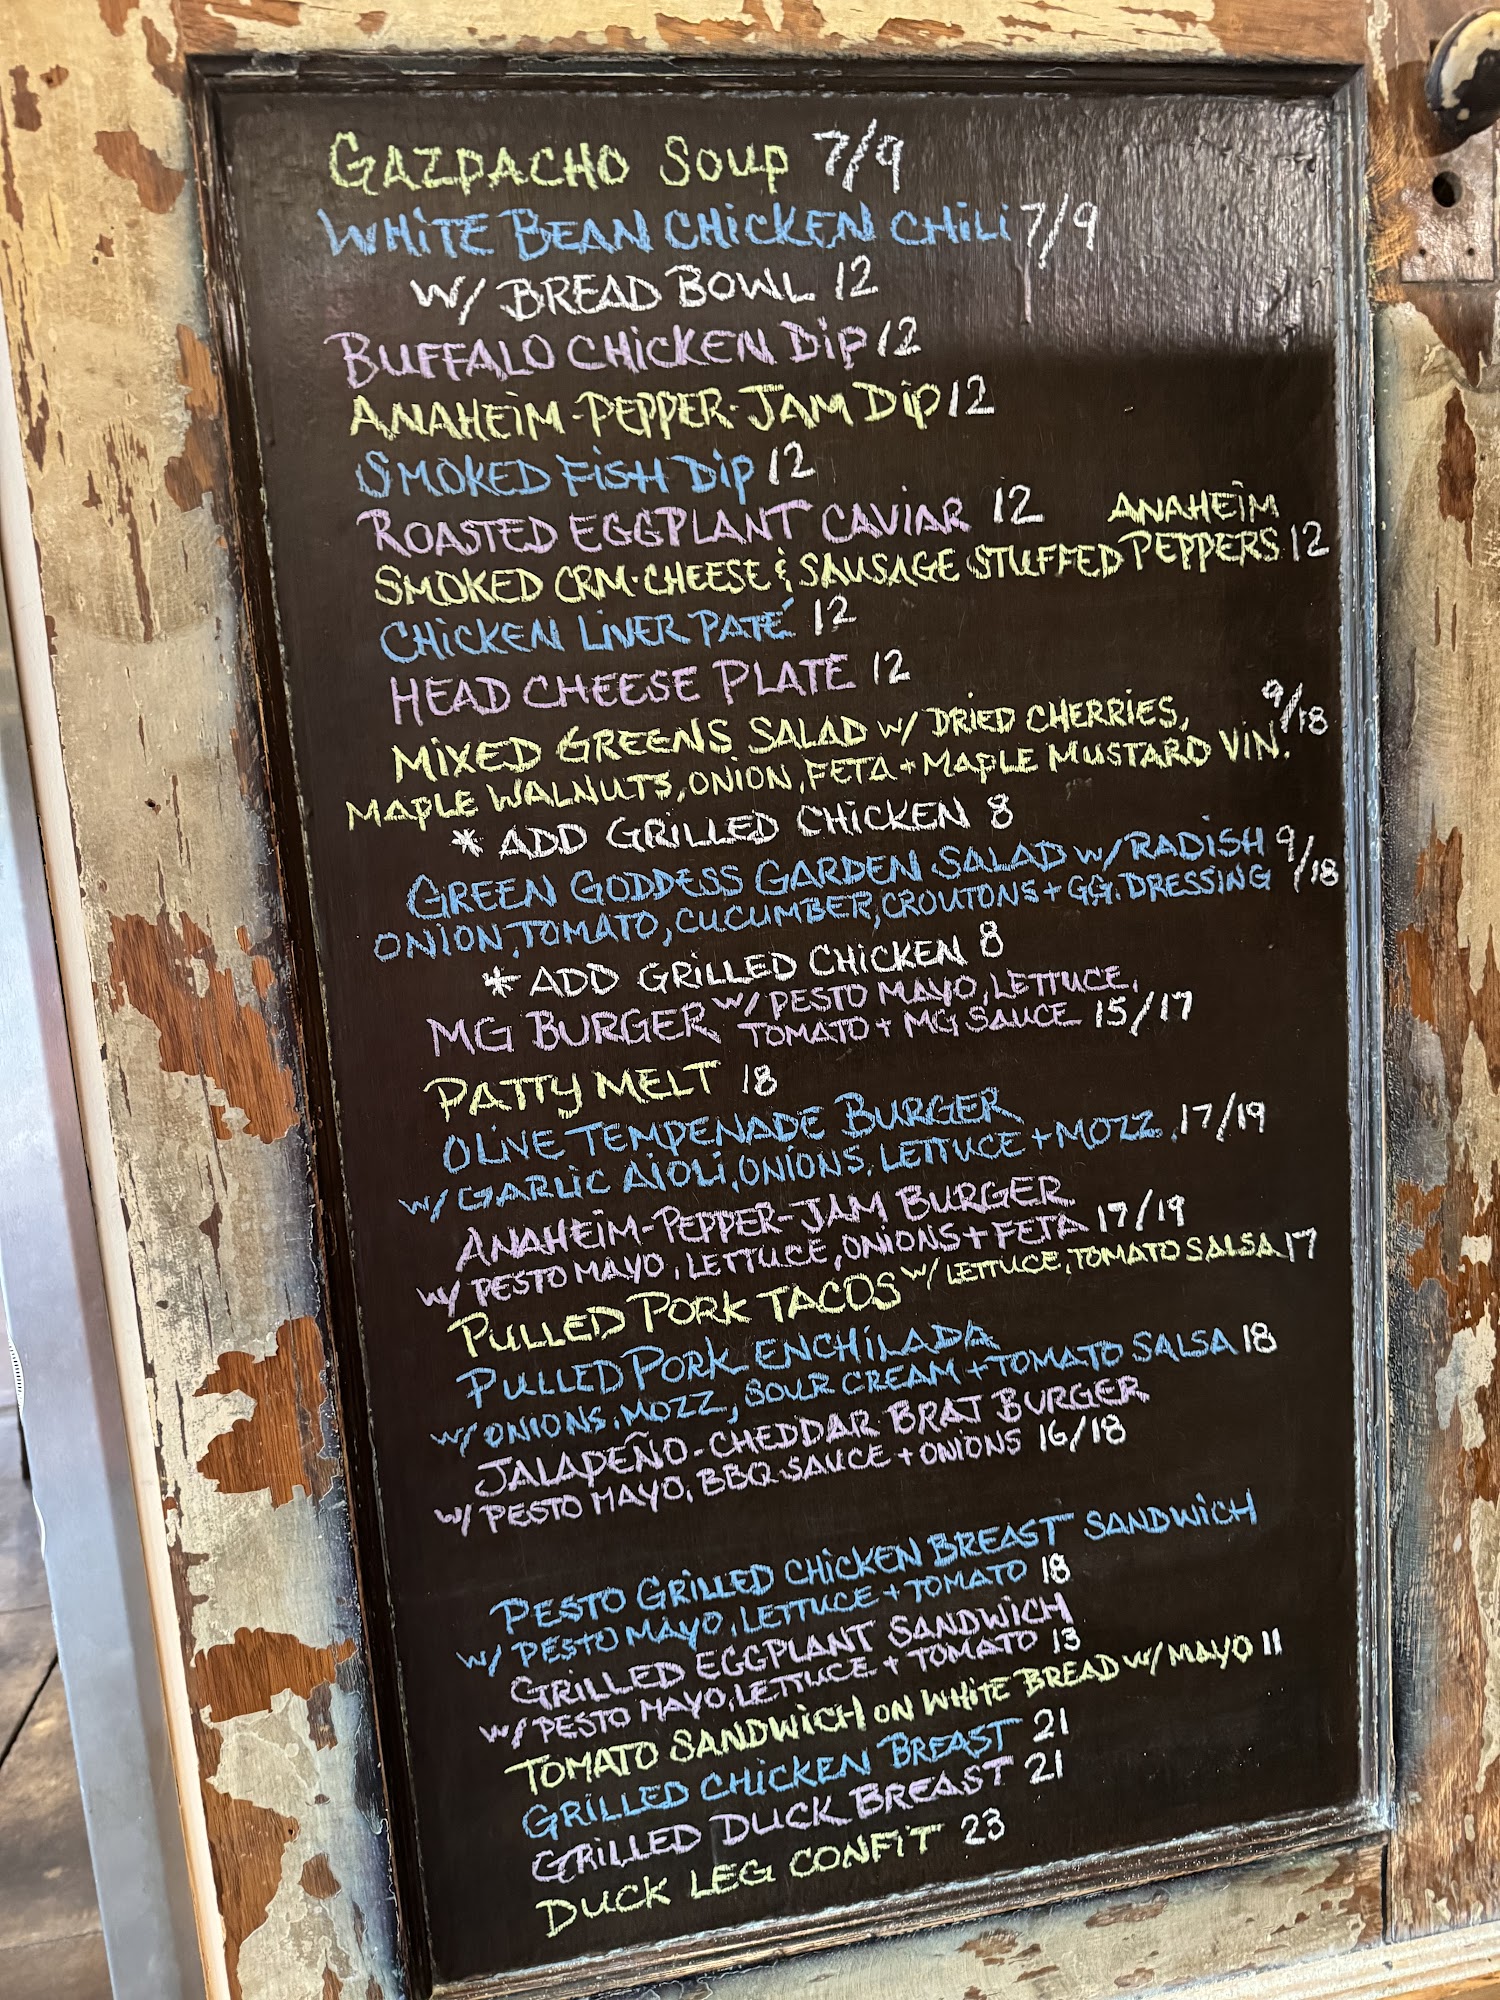 GAZPACHO SOUP 7/9
WHITE BEAN CHICKEN CHILI 7/9
W/ BREAD BOWL 12
BUFFALO CHICKEN DIP 12
ANAHEIM-PEPPER-JAM DIP 12
SMOKED FISH DIP 12
ROASTED EGGPLANT CAVIAR 12
ANAHEIM
SMOKED CRM·CHEESE & SAUSAGE STUFFED PEPPERS 12
CHICKEN LIVER PATÉ 12
HEAD CHEESE PLATE 12
MIXED GREENS SALAD W/ DRIED CHERRIES, 9/18
MAPLE WALNUTS, ONION, FETA + MAPLE MUSTARD VIN.
* ADD GRILLED CHICKEN 8
GREEN GODDESS GARDEN SALAD W/ RADISH 9/18
ONION, TOMATO, CUCUMBER, CROUTONS + GG. DRESSING
* ADD GRILLED CHICKEN 8
MG BURGER W/ PESTO MAYO, LETTUCE,
TOMATO + MG SAUCE 15/17
PATTY MELT 18
OLIVE TEMPENADE BURGER
W/ GARLIC AIOLI, ONIONS, LETTUCE + MOZZ. 17/19
ANAHEIM-PEPPER-JAM BURGER
W/ PESTO MAYO, LETTUCE, ONIONS + FETA 17/19
PULLED PORK TACOS W/ LETTUCE, TOMATO SALSA 17
PULLED PORK ENCHILADA
W/ ONIONS, MOZZ, SOUR CREAM + TOMATO SALSA 18
JALAPEÑO-CHEDDAR BRAT BURGER
W/ PESTO MAYO, BBQ SAUCE + ONIONS 16/18
PESTO GRILLED CHICKEN BREAST SANDWICH
W/ PESTO MAYO, LETTUCE + TOMATO 18
GRILLED EGGPLANT SANDWICH
W/ PESTO MAYO, LETTUCE + TOMATO 13
TOMATO SANDWICH ON WHITE BREAD W/ MAYO 11
GRILLED CHICKEN BREAST 21
GRILLED DUCK BREAST 21
DUCK LEG CONFIT 23